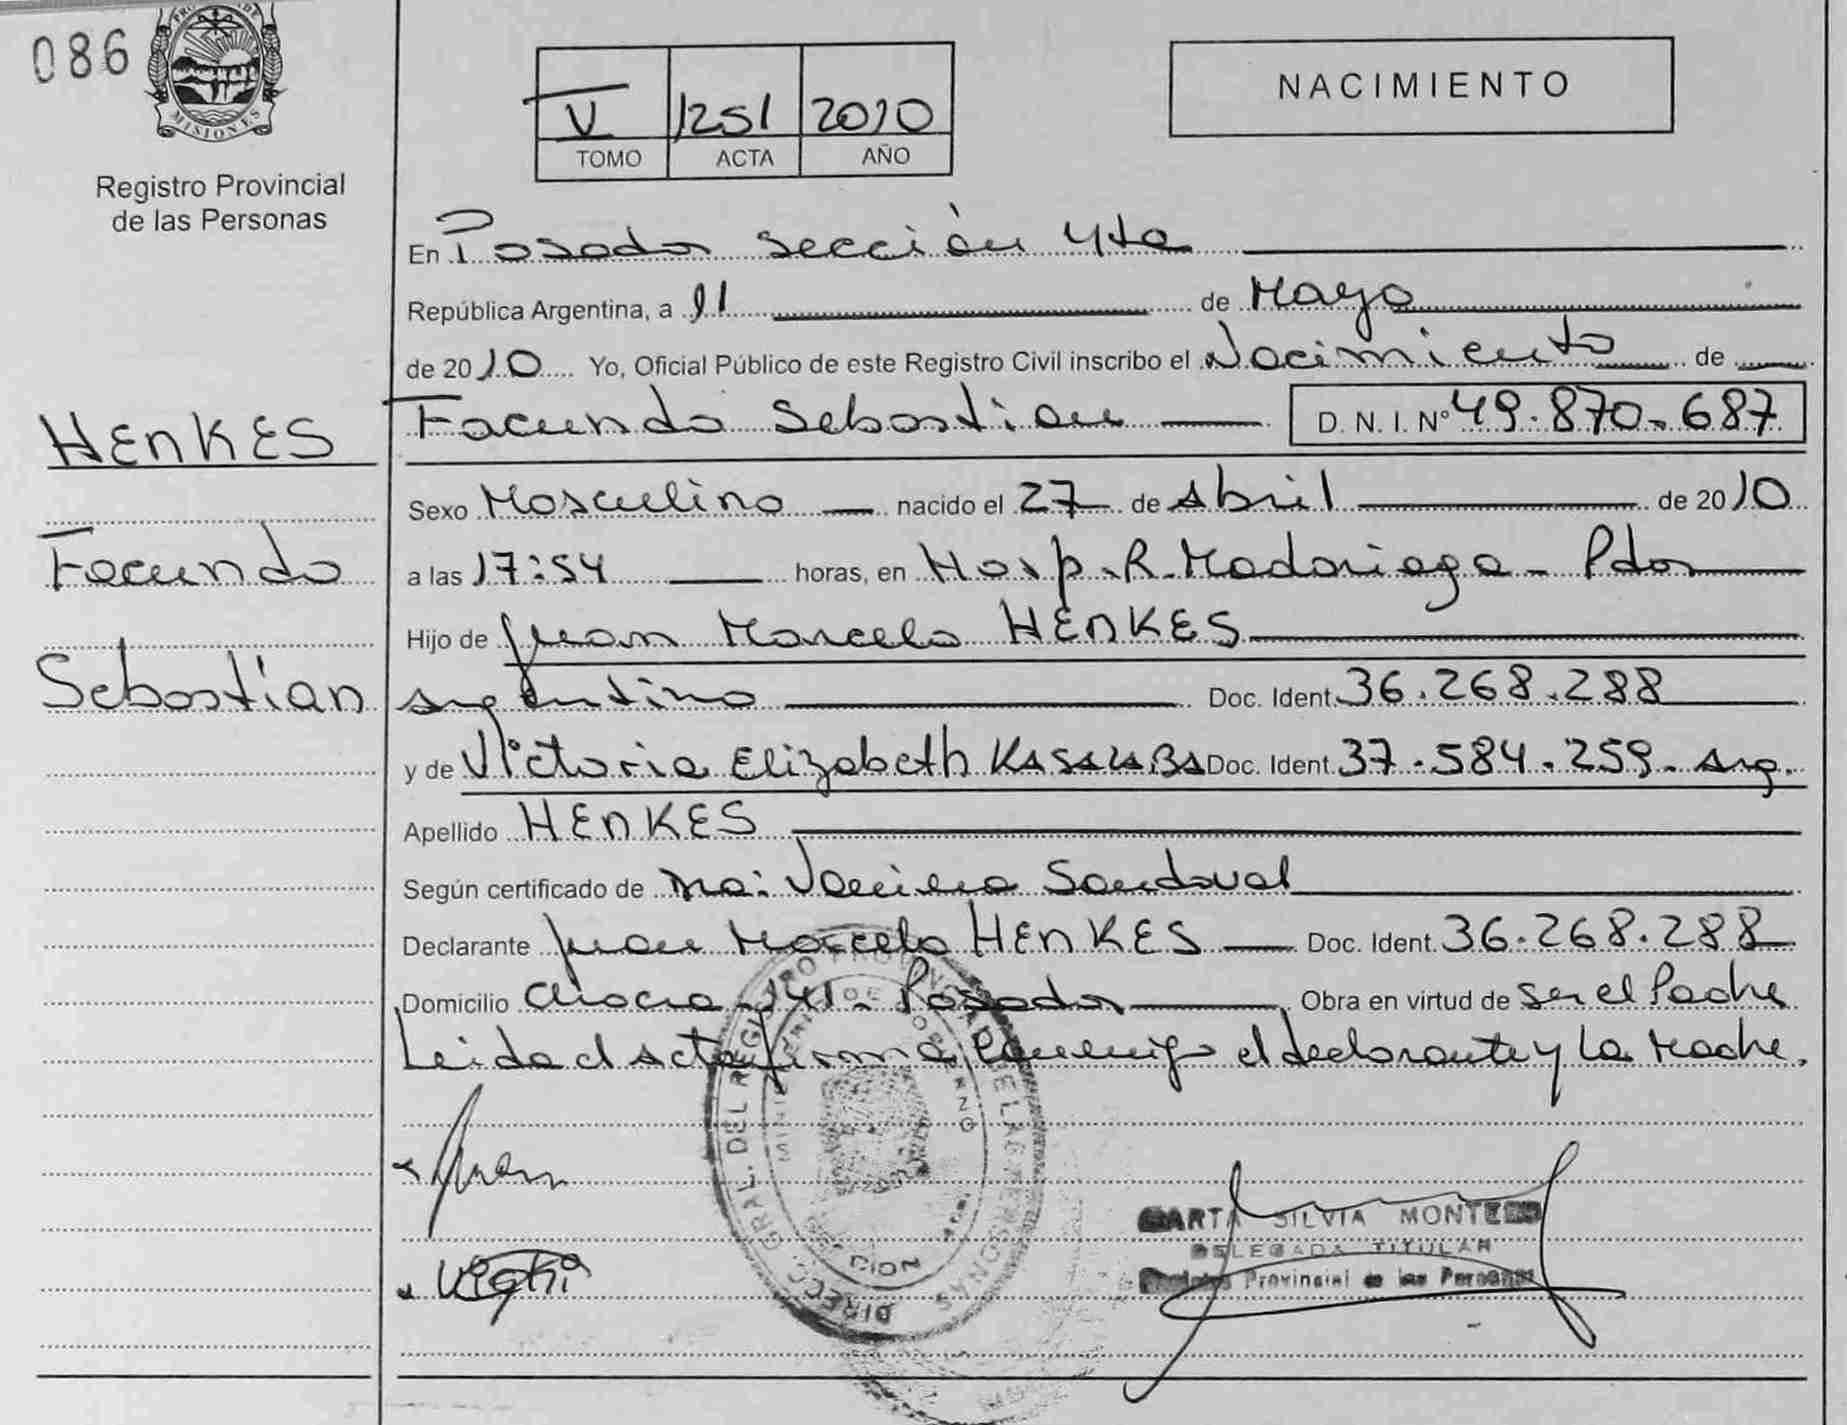 086
MISIONES
Registro Provincial
de las Personas
V 1251 2010
TOMO ACTA AÑO
NACIMIENTO
En Posadas sección 4ta
República Argentina, a 11 de Mayo
de 2010 Yo, Oficial Público de este Registro Civil inscribo el Nacimiento de
Facundo Sebastian D. N. I. Nº 49.870.687
HENKES
Facundo
Sebastian
Sexo Masculino nacido el 27 de Abril de 2010
a las 17:54 horas, en Hosp. R. Madariaga - Pdas
Hijo de Juan Marcelo HENKES
argentino Doc. Ident. 36.268.288
y de Victoria Elizabeth Doc. Ident. 37.584.259 - Arg.
Apellido HENKES
Según certificado de Sandoval
Declarante Juan Marcelo HENKES Doc. Ident. 36.268.288
Domicilio Posadas Obra en virtud de ser el Padre
Leida el Acta firma el declarante y la Madre.
DIRECC. GRAL. DEL REGISTRO PROVINCIAL DE LAS PERSONAS
Juan
MARTA SILVIA MONTERO
DELEGADA TITULAR
Provincial de las Personas